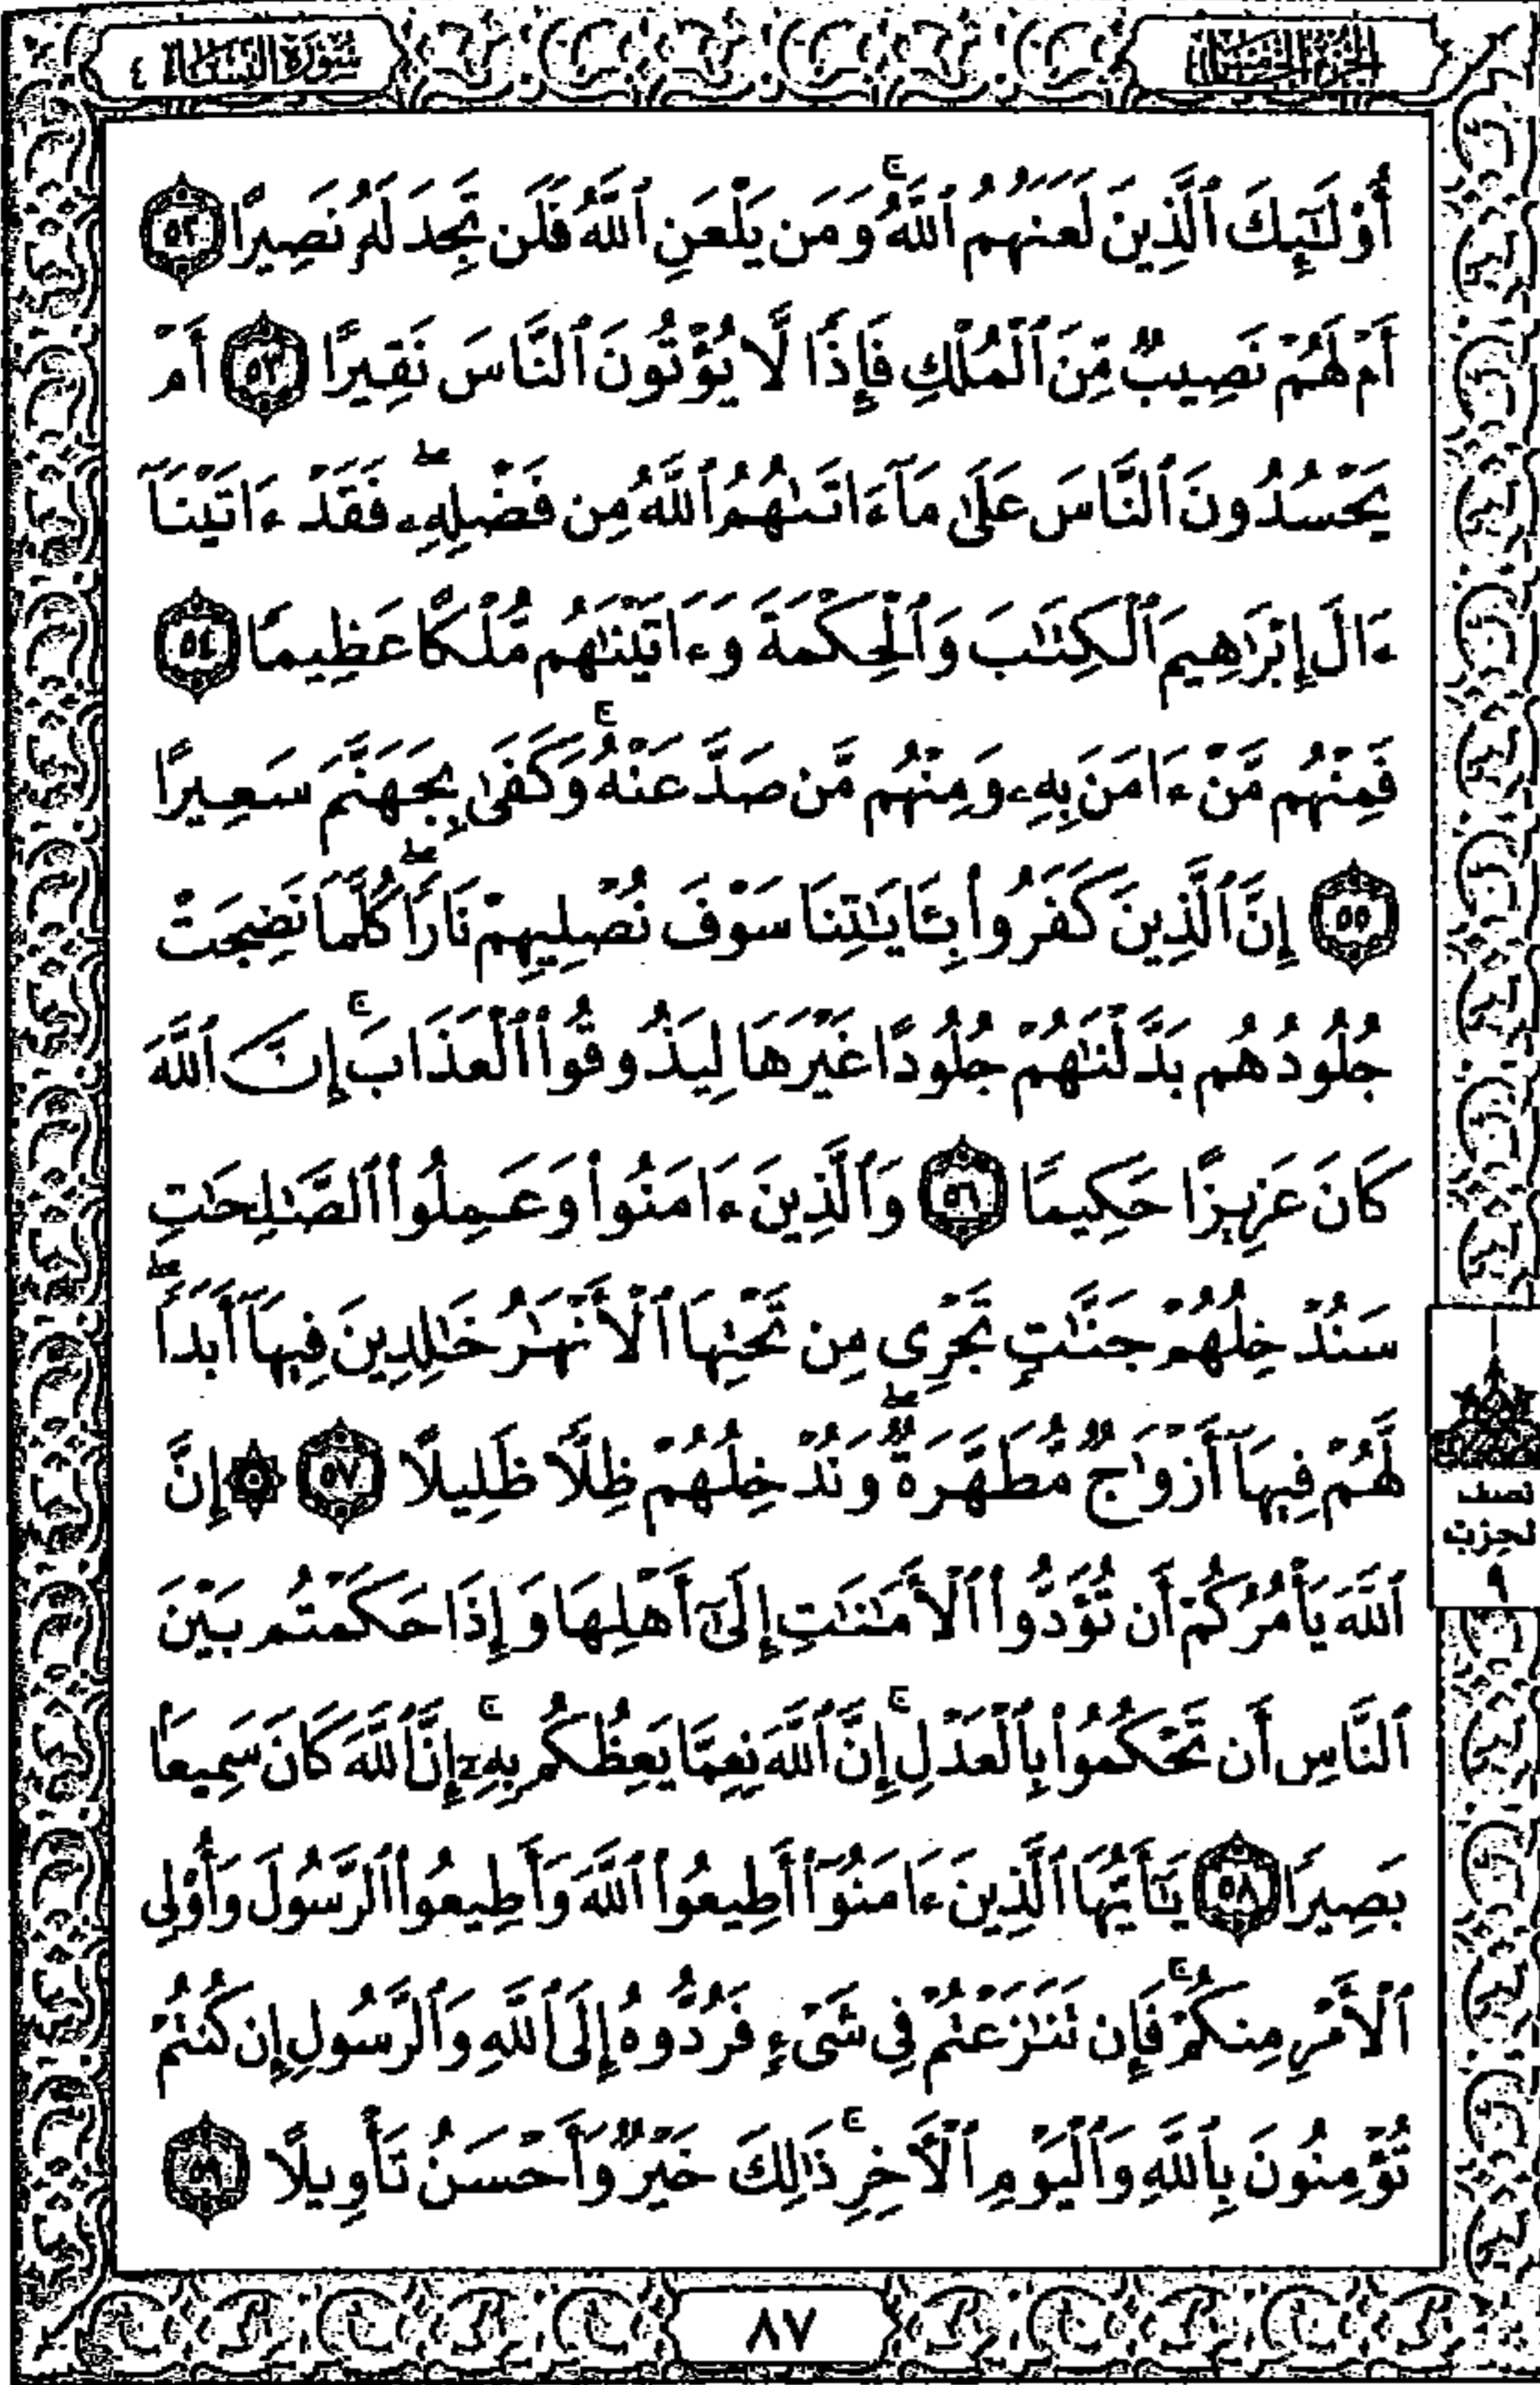 سورة النساء ٤
الجزء الخامس
أُوْلَٰٓئِكَ ٱلَّذِينَ لَعَنَهُمُ ٱللَّهُۖ وَمَن يَلْعَنِ ٱللَّهُ فَلَن تَجِدَ لَهُۥ نَصِيرًا ٥٢
أَمْ لَهُمْ نَصِيبٌ مِّنَ ٱلْمُلْكِ فَإِذًا لَّا يُؤْتُونَ ٱلنَّاسَ نَقِيرًا ٥٣ أَمْ
يَحْسُدُونَ ٱلنَّاسَ عَلَىٰ مَآ ءَاتَىٰهُمُ ٱللَّهُ مِن فَضْلِهِۦۖ فَقَدْ ءَاتَيْنَآ
ءَالَ إِبْرَٰهِيمَ ٱلْكِتَٰبَ وَٱلْحِكْمَةَ وَءَاتَيْنَٰهُم مُّلْكًا عَظِيمًا ٥٤
فَمِنْهُم مَّنْ ءَامَنَ بِهِۦ وَمِنْهُم مَّن صَدَّ عَنْهُۚ وَكَفَىٰ بِجَهَنَّمَ سَعِيرًا
٥٥ إِنَّ ٱلَّذِينَ كَفَرُوا۟ بِـَٔايَٰتِنَا سَوْفَ نُصْلِيهِمْ نَارًاۖ كُلَّمَا نَضِجَتْ
جُلُودُهُم بَدَّلْنَٰهُمْ جُلُودًا غَيْرَهَا لِيَذُوقُوا۟ ٱلْعَذَابَۚ إِنَّ ٱللَّهَ
كَانَ عَزِيزًا حَكِيمًا ٥٦ وَٱلَّذِينَ ءَامَنُوا۟ وَعَمِلُوا۟ ٱلصَّٰلِحَٰتِ
سَنُدْخِلُهُمْ جَنَّٰتٍ تَجْرِى مِن تَحْتِهَا ٱلْأَنْهَٰرُ خَٰلِدِينَ فِيهَآ أَبَدًاۖ
لَّهُمْ فِيهَآ أَزْوَٰجٌ مُّطَهَّرَةٌۖ وَنُدْخِلُهُمْ ظِلًّا ظَلِيلًا ٥٧ ۞ إِنَّ
ٱللَّهَ يَأْمُرُكُمْ أَن تُؤَدُّوا۟ ٱلْأَمَٰنَٰتِ إِلَىٰٓ أَهْلِهَا وَإِذَا حَكَمْتُم بَيْنَ
ٱلنَّاسِ أَن تَحْكُمُوا۟ بِٱلْعَدْلِۚ إِنَّ ٱللَّهَ نِعِمَّا يَعِظُكُم بِهِۦٓۚ إِنَّ ٱللَّهَ كَانَ سَمِيعًۢا
بَصِيرًا ٥٨ يَٰٓأَيُّهَا ٱلَّذِينَ ءَامَنُوٓا۟ أَطِيعُوا۟ ٱللَّهَ وَأَطِيعُوا۟ ٱلرَّسُولَ وَأُو۟لِى
ٱلْأَمْرِ مِنكُمْۚ فَإِن تَنَٰزَعْتُمْ فِى شَىْءٍ فَرُدُّوهُ إِلَى ٱللَّهِ وَٱلرَّسُولِ إِن كُنتُمْ
تُؤْمِنُونَ بِٱللَّهِ وَٱلْيَوْمِ ٱلْءَاخِرِۚ ذَٰلِكَ خَيْرٌ وَأَحْسَنُ تَأْوِيلًا ٥٩
نصف
لحزب
٩
٨٧